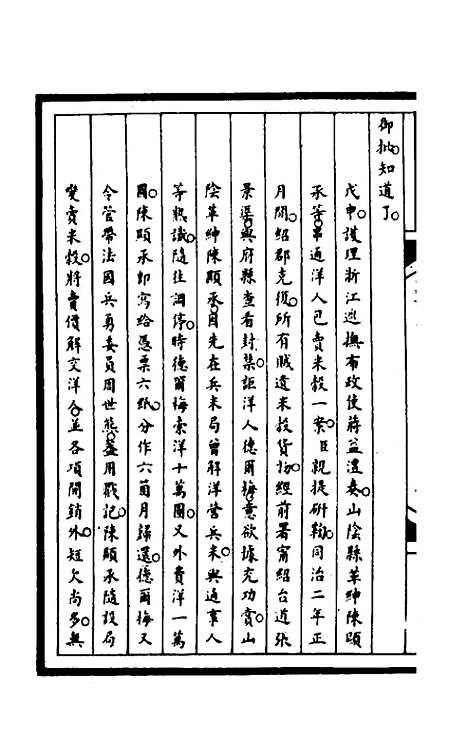 御批知道了
戊申護理浙江巡撫布政使蔣益澧奏山陰縣革紳陳顯
承等串通洋人已賣米穀一案臣親提研鞫同治二年正
月間紹郡克復所有賊遺米穀貨物經前署甯紹台道張
景渠與府縣查看封禁詎洋人德爾梅意欲據充功賞山
陰革紳陳顯承因先在兵米局曾解洋營兵米與通事人
等熟識隨往調停時德爾梅索洋十萬圓又外費洋一萬
圓陳顯承卽寫給憑票六紙分作六箇月歸還德爾梅又
令管帶法國兵勇委員周世熊蓋用戳記陳顯承隨設局
變賣米穀將賣價解交洋人並各項開銷外短欠尚多無